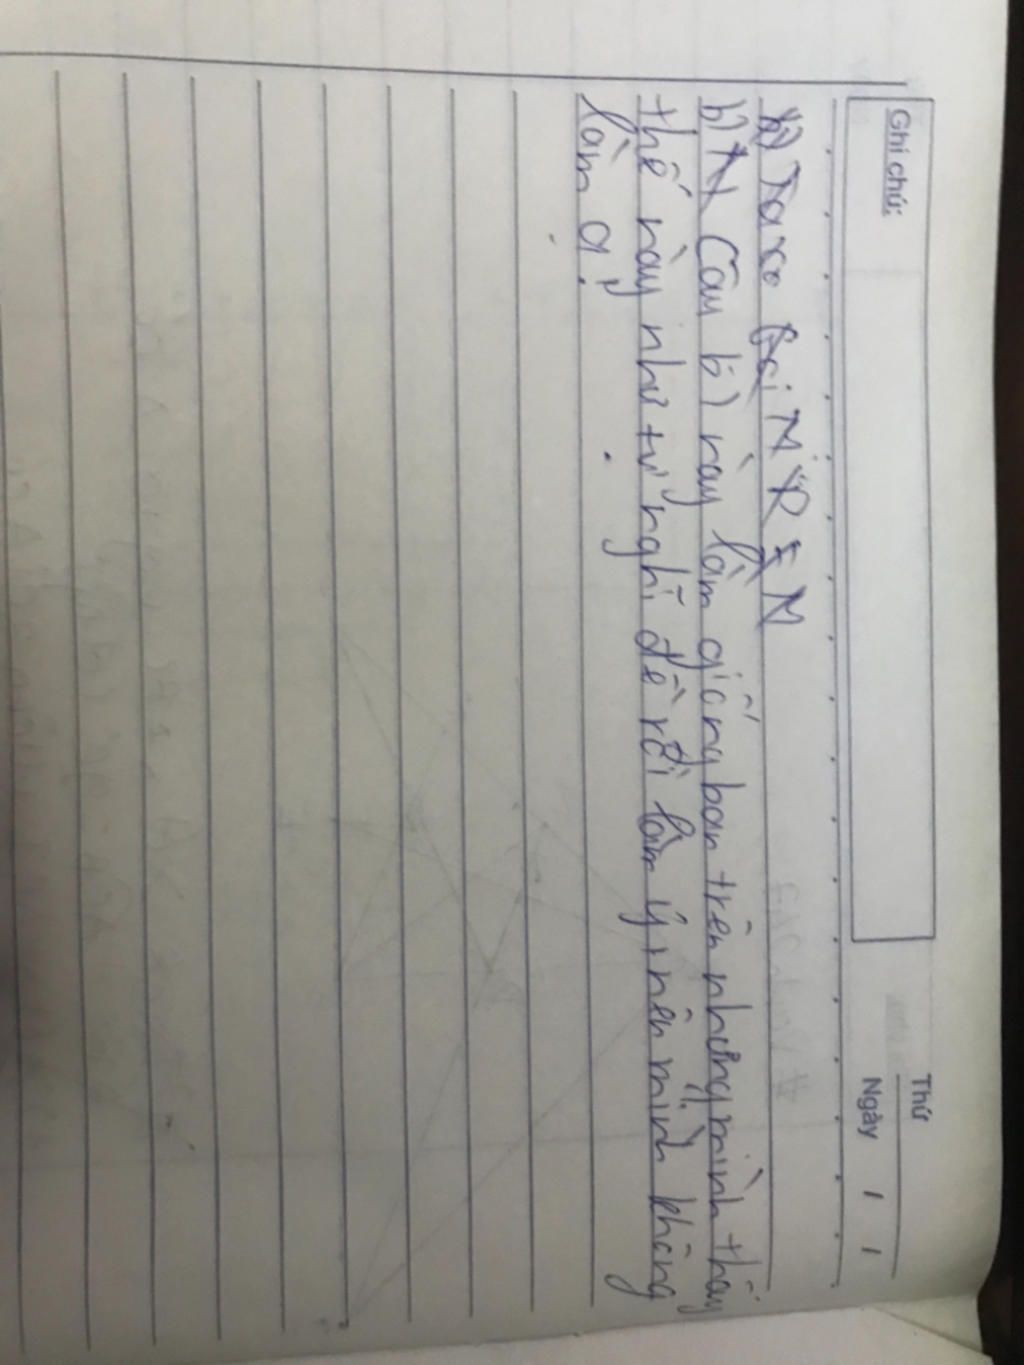 Ghi chú:
Thứ
Ngày / /
b) Ta xo Gọi M R = M
b) Câu b) này làm giống bạn trên nhưng mình thấy
thế này như tự nghĩ đề rồi làm ý, nên mình không
làm ạ.